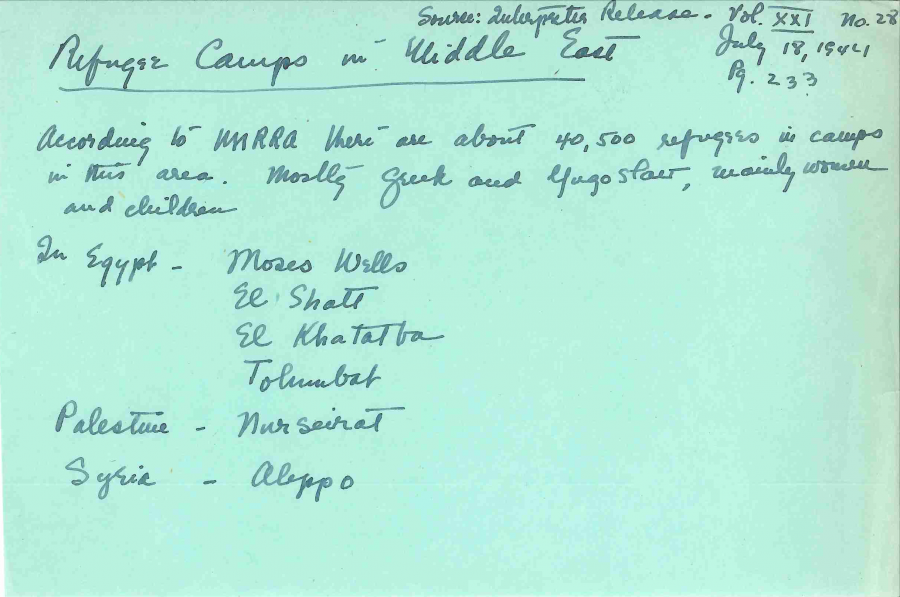 Source: Interpreter Release. Vol. XXI No. 28
July 18, 1944
Pg. 233
Refugee Camps in Middle East
According to UNRRA there are about 40,500 refugees in camps
in this area. Mostly Greek and Yugoslav, mainly women
and children
In Egypt - Moses Wells
El Shatt
El Khatatba
Tolumbat
Palestine - Nurseirat
Syria - Aleppo